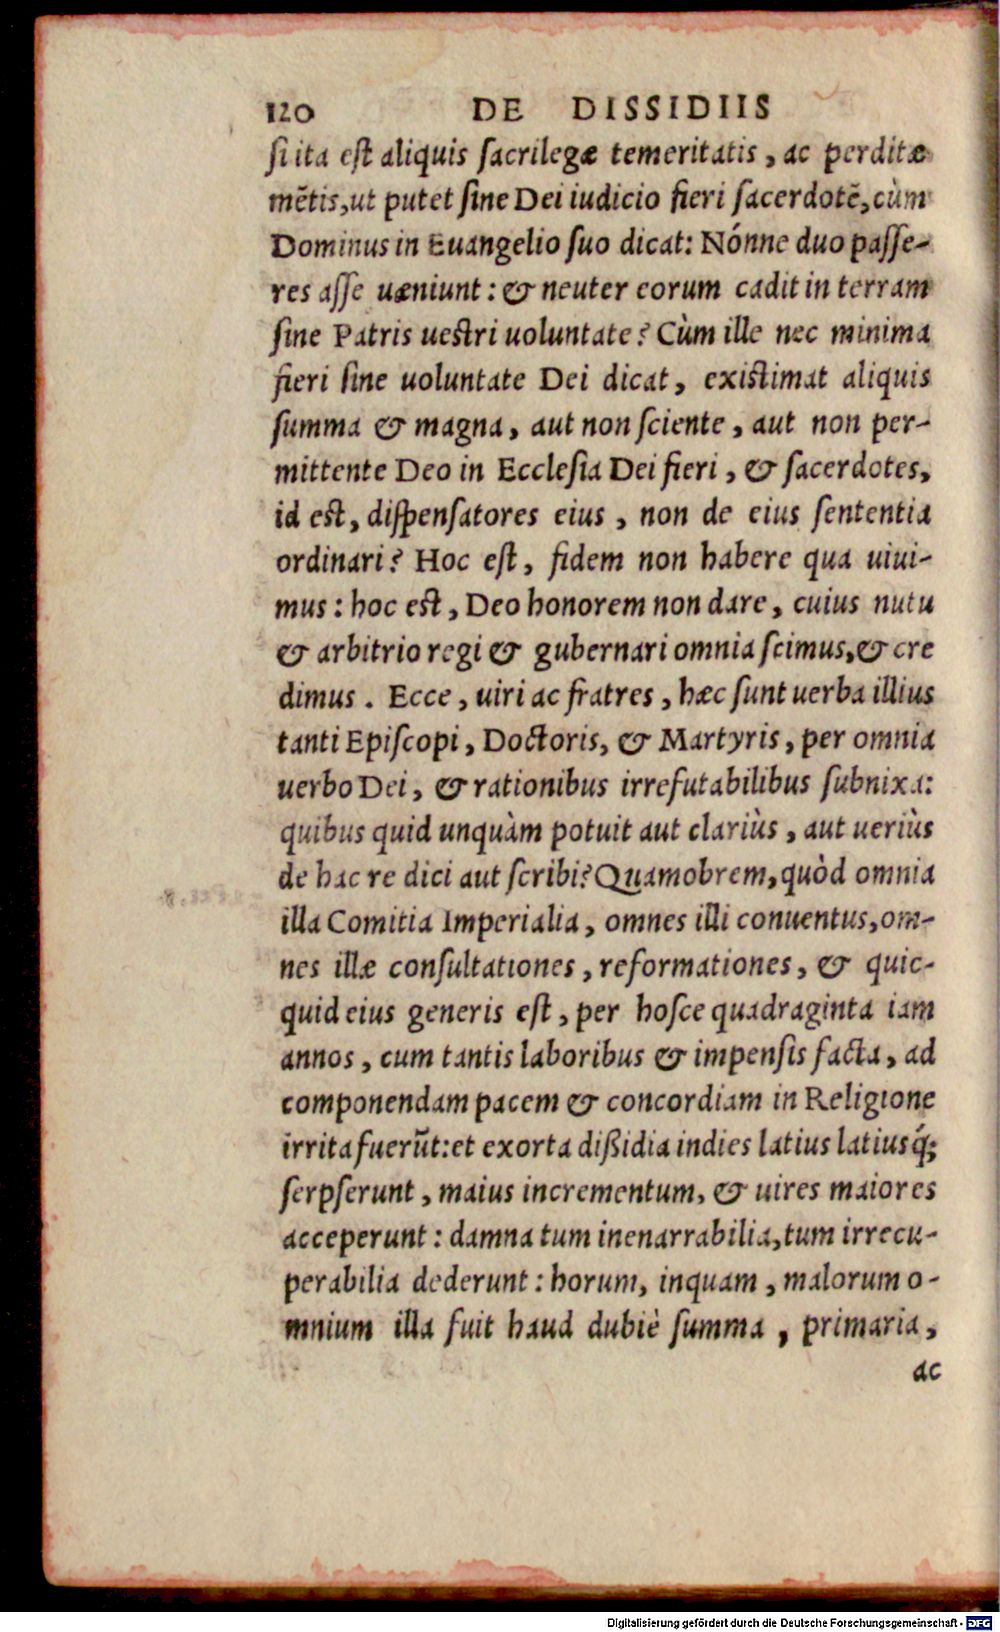 120 DE DISSIDIIS
si ita est aliquis sacrilegæ temeritatis, ac perditæ
mẽtis, ut putet sine Dei iudicio fieri sacerdotẽ, cùm
Dominus in Euangelio suo dicat: Nónne duo passe-
res asse uæniunt: & neuter eorum cadit in terram
sine Patris uestri uoluntate? Cùm ille nec minima
fieri sine uoluntate Dei dicat, existimat aliquis
summa & magna, aut non sciente, aut non per-
mittente Deo in Ecclesia Dei fieri, & sacerdotes,
id est, dispensatores eius, non de eius sententia
ordinari? Hoc est, fidem non habere qua uiui-
mus: hoc est, Deo honorem non dare, cuius nutu
& arbitrio regi & gubernari omnia scimus, & cre
dimus. Ecce, uiri ac fratres, hæc sunt uerba illius
tanti Episcopi, Doctoris, & Martyris, per omnia
uerbo Dei, & rationibus irrefutabilibus subnixa:
quibus quid unquàm potuit aut clariùs, aut ueriùs
de hac re dici aut scribi? Quamobrem, quòd omnia
illa Comitia Imperialia, omnes illi conuentus, om-
nes illæ consultationes, reformationes, & quic-
quid eius generis est, per hosce quadraginta iam
annos, cum tantis laboribus & impensis facta, ad
componendam pacem & concordiam in Religione
irrita fuerũt: et exorta dißidia indies latius latiusq́;
serpserunt, maius incrementum, & uires maiores
acceperunt: damna tum inenarrabilia, tum irrecu-
perabilia dederunt: horum, inquam, malorum o-
mnium illa fuit haud dubiè summa, primaria,
ac
Digitalisierung gefördert durch die Deutsche Forschungsgemeinschaft - DFG